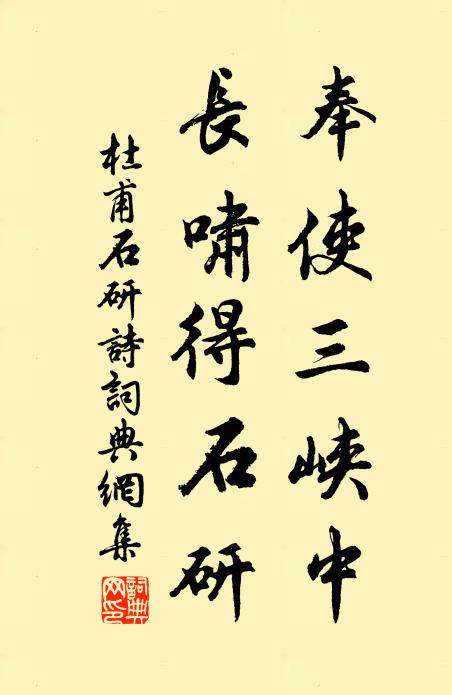 奉使三峽中
長嘯得石研
杜甫石研詩詞典網集
詞典網印